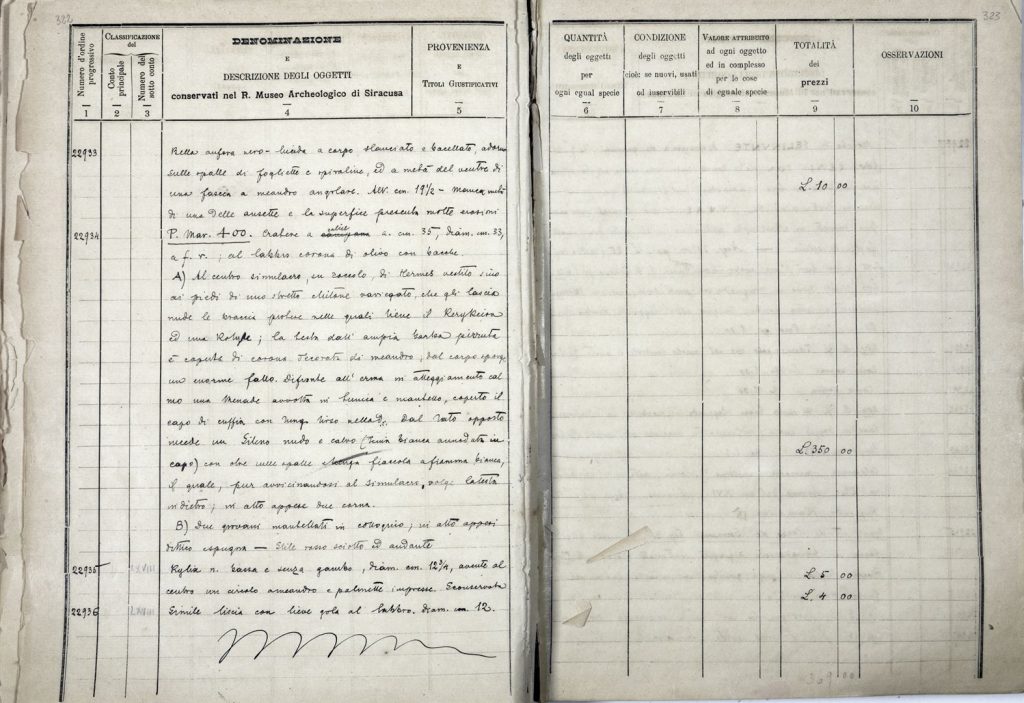 322
Numero d'ordine progressivo
CLASSIFICAZIONE del
Conto principale
Numero del sotto conto
DENOMINAZIONE
E
DESCRIZIONE DEGLI OGGETTI
conservati nel R. Museo Archeologico di Siracusa
PROVENIENZA
E
TITOLI GIUSTIFICATIVI
1 2 3 4 5
22933 Bella anfora nero-lucida a corpo slanciato e baccellato, adorna
sulle spalle di fogliette e spiraline, ed a metà del ventre di
una fascia a meandro angolare. Alt. cm. 19 1/2 - Manca metà
di una delle ansette e la superfice presenta molte erosioni
22934 P. Mar. 400. Cratere a calice a. cm. 35, diam. cm. 33,
a f. r.; al labbro corona di olivo con bacche
A) Al centro simulacro, su zoccolo, di Hermes vestito sino
ai piedi di uno stretto chitone variegato, che gli lascia
nude le braccia protese nelle quali tiene il Kerykeion
ed una Kotyle; la testa dall' ampia barba pizzuta
è coperta di corona decorata di meandro; dal corpo sporge
un enorme fallo. Difronte all' erma in atteggiamento cal
mo una Menade avvolta in tunica e mantello, coperto il
capo di cuffia con lungo tirso nella D. Dal lato opposto
incede un Sileno nudo e calvo (tenia bianca annodata in
capo) con otre sulle spalle fiaccola a fiamma bianca,
il quale, pur avvicinandosi al simulacro, volge la testa
indietro; in alto appese due corna.
B) Due giovani mantellati in colloquio; in alto appesi
dittico e spugna — Stile rosso sciolto ed andante
22935 XXVIII Kylix n. bassa e senza gambo, diam. cm. 12 3/4, avente al
centro un circolo a meandro e palmette impresse. Sconservata
22936 XXVIII Simile liscia con lieve gola al labbro. diam. cm. 12.
323
QUANTITÀ
degli oggetti
per
ogni egual specie
CONDIZIONE
degli oggetti
cioè: se nuovi, usati
od inservibili
VALORE ATTRIBUITO
ad ogni oggetto
ed in complesso
per le cose
di eguale specie
TOTALITÀ
dei
prezzi
OSSERVAZIONI
6 7 8 9 10
L. 10 00
L. 350 00
L. 5 00
L. 4 00
369 00